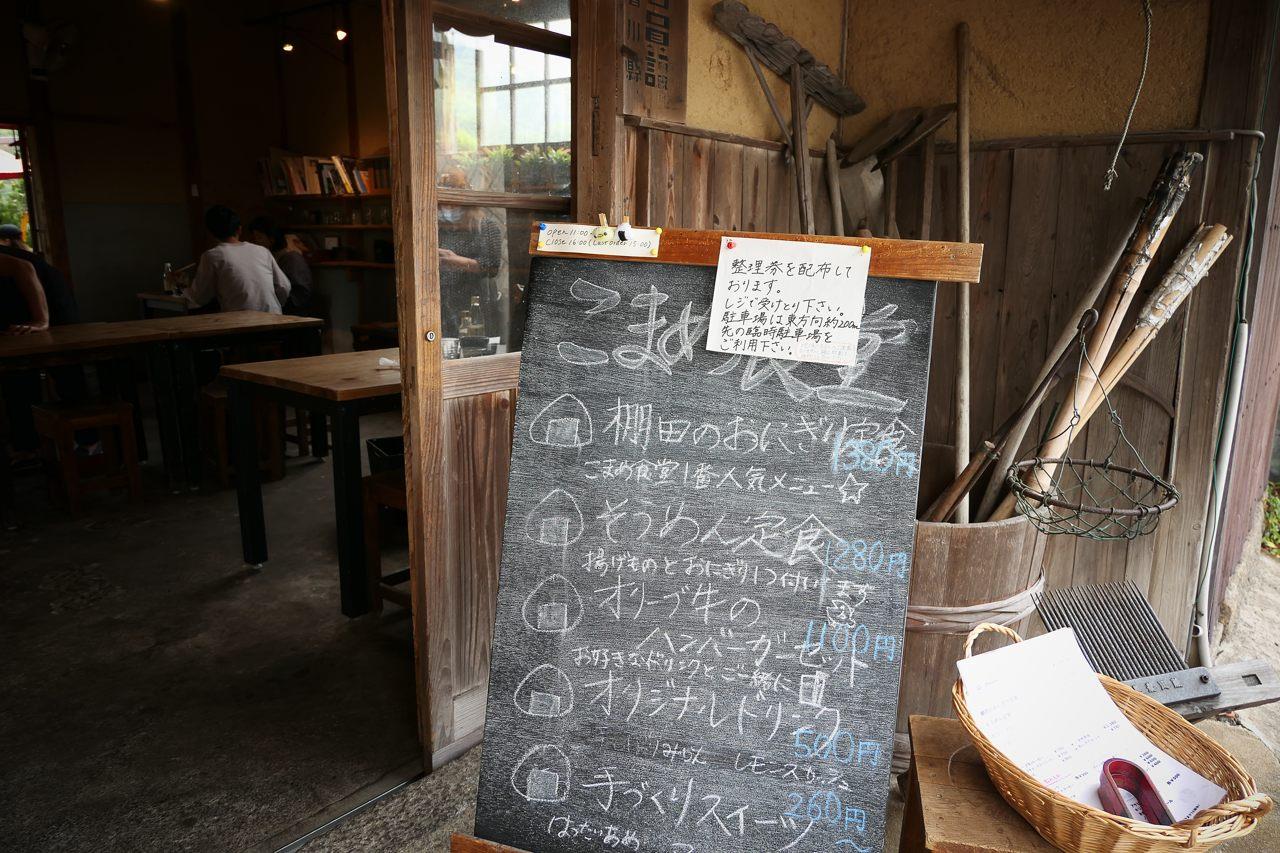 OPEN 11:00~
CLOSE 16:00 (Last order 15:00)
整理券を配布して
おります。
レジで受けとり下さい。
駐車場は東方向約200m
先の臨時駐車場を
ご利用下さい。
こまめ食堂
棚田のおにぎり定食
1380円
こまめ食堂1番人気メニュー☆
そうめん定食
1280円
揚げものとおにぎり1つ付いてます
オリーブ牛の
ハンバーガーセット
1100円
お好きなドリンクとご一緒に
オリジナルドリンク
500円
レモンスカッシュ
手づくりスイーツ
260円~
はったいあめ